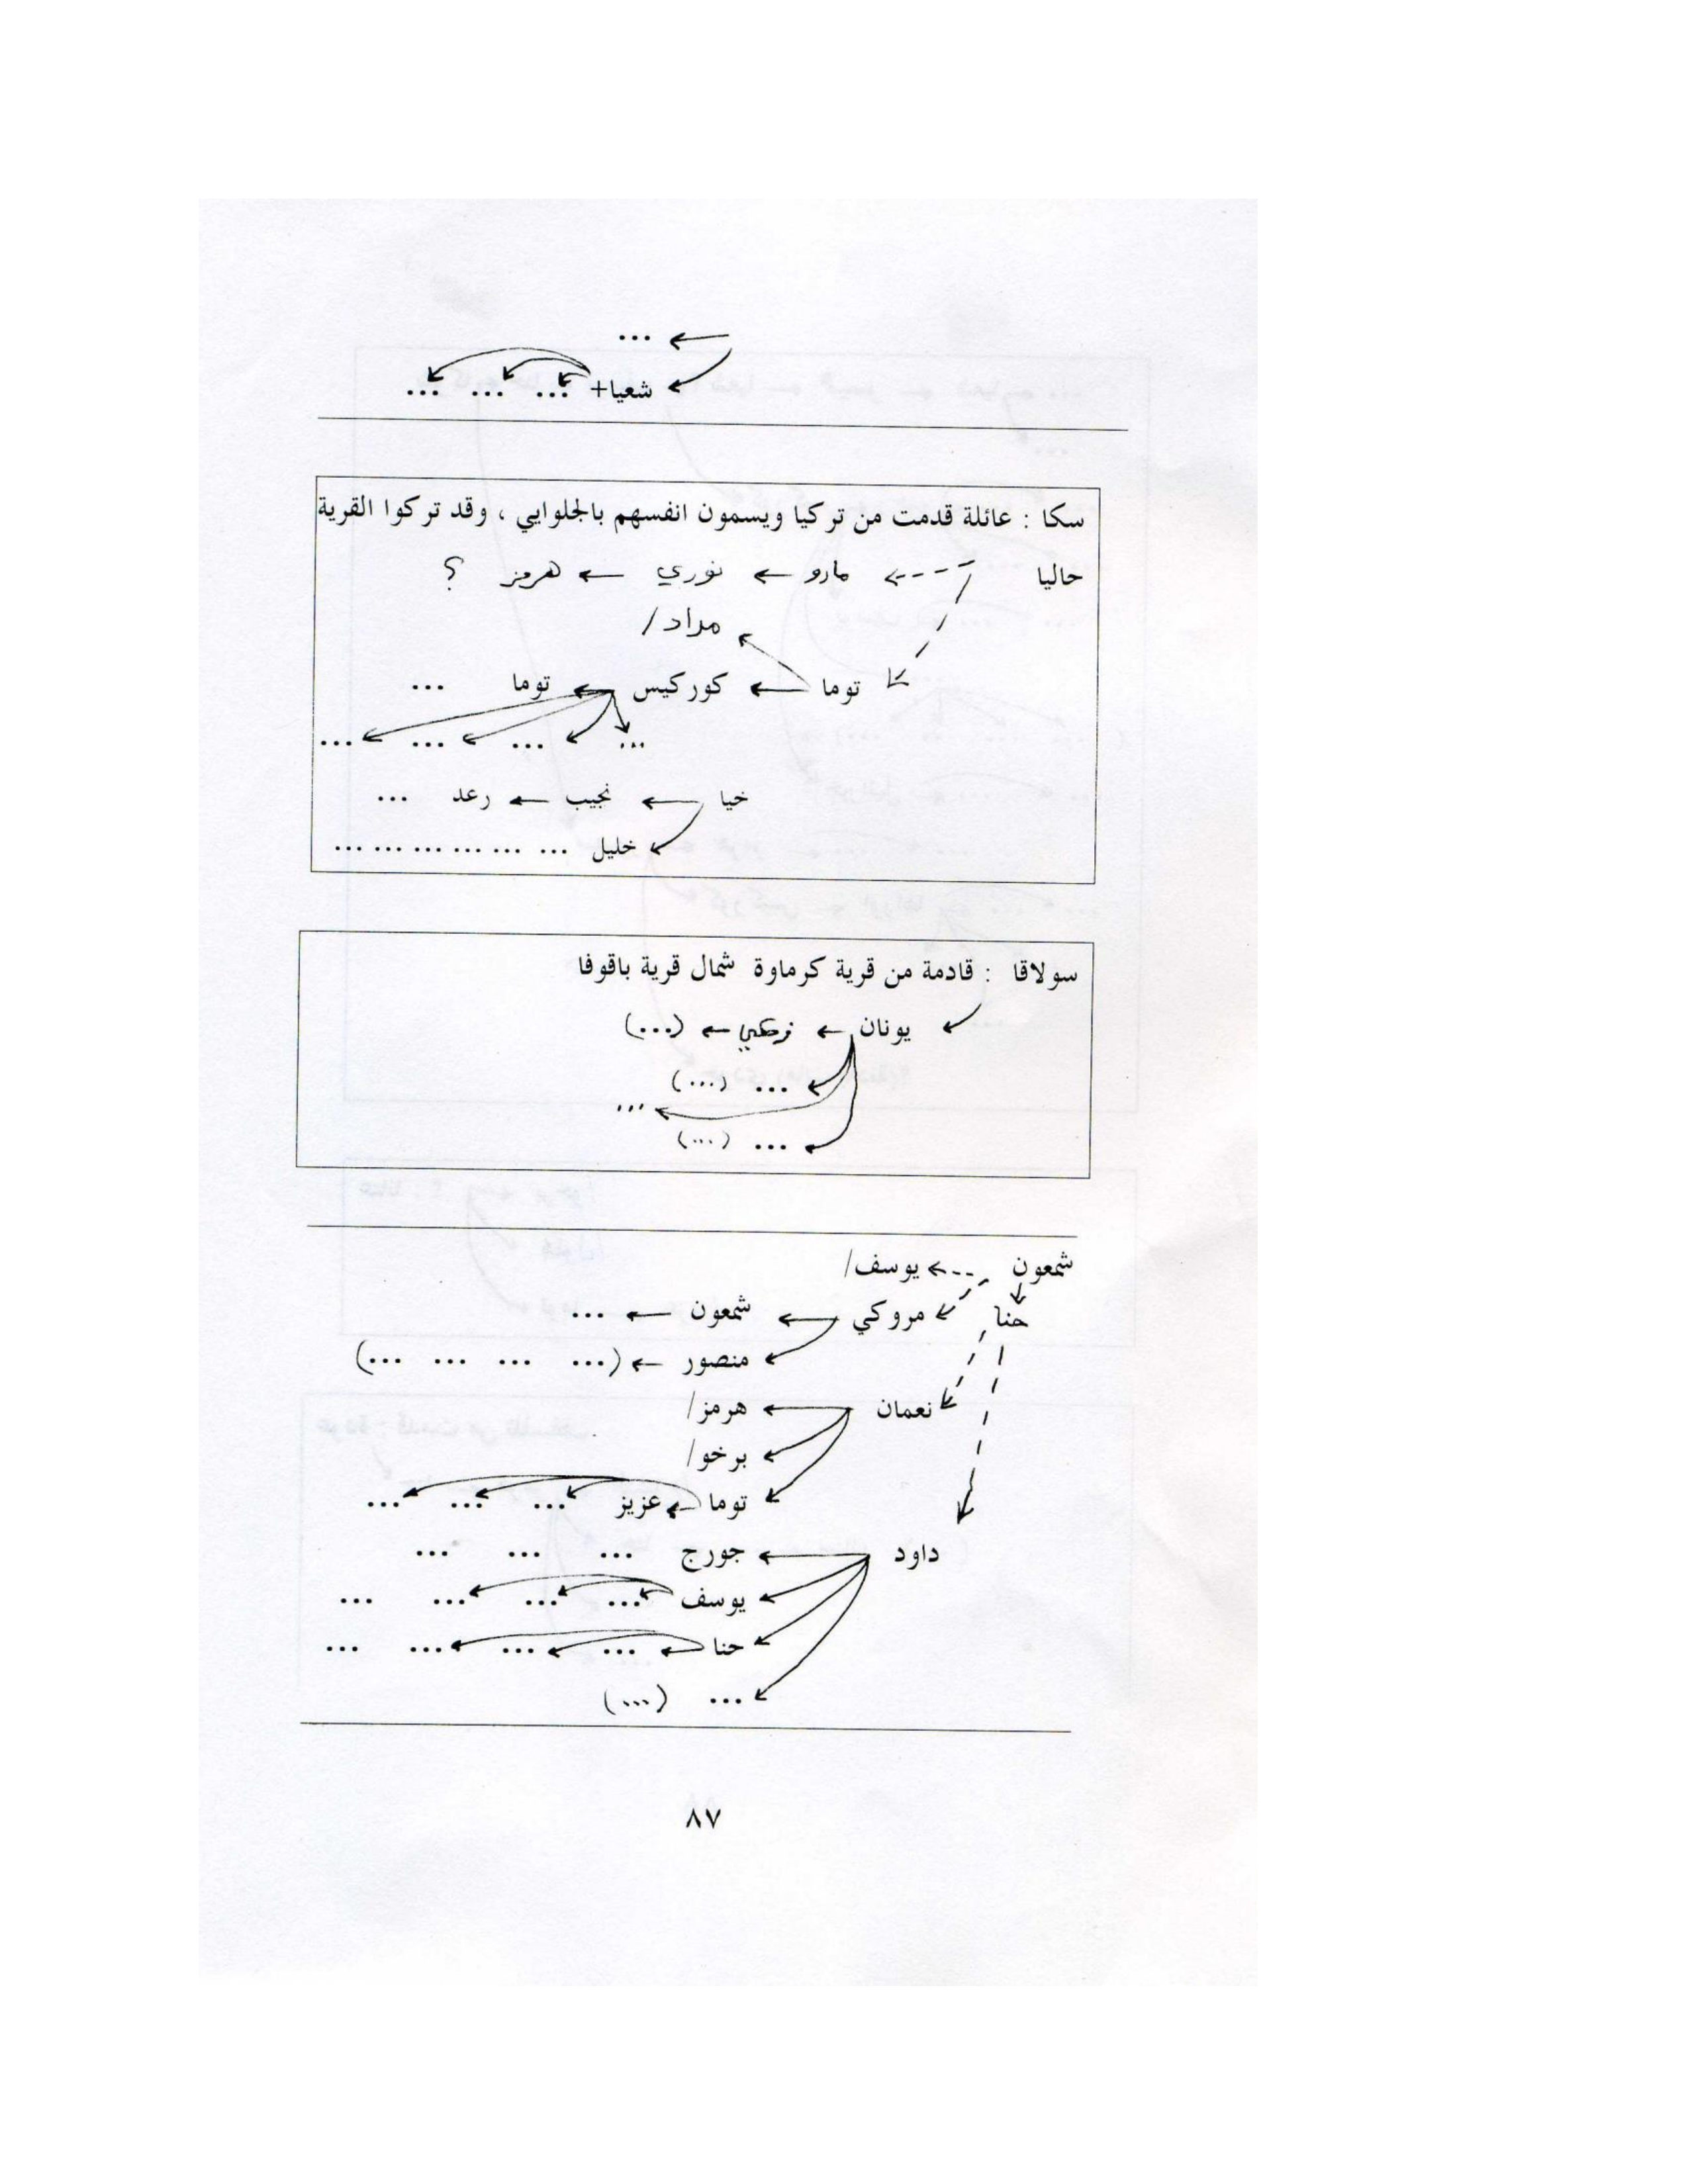 ...
شعيا+ ... ... ...
سكا : عائلة قدمت من تركيا ويسمون انفسهم بالجلوايي ، وقد تركوا القرية
حاليا مارو نوري هرمز ؟
مراد/
توما كوركيس توما ...
... ... ... ...
خيا نجيب رعد ...
خليل ... ... ... ... ... ...
سولاقا : قادمة من قرية كرماوة شمال قرية باقوفا
يونان (...)
... (...)
...
... (...)
شمعون يوسف/
حنا مروكي شمعون ...
منصور (... ... ... ...)
نعمان هرمز/
برخو/
توما عزيز ... ... ...
داود جورج ... ... ...
يوسف ... ... ... ...
حنا ... ... ... ...
... (...)
٨٧